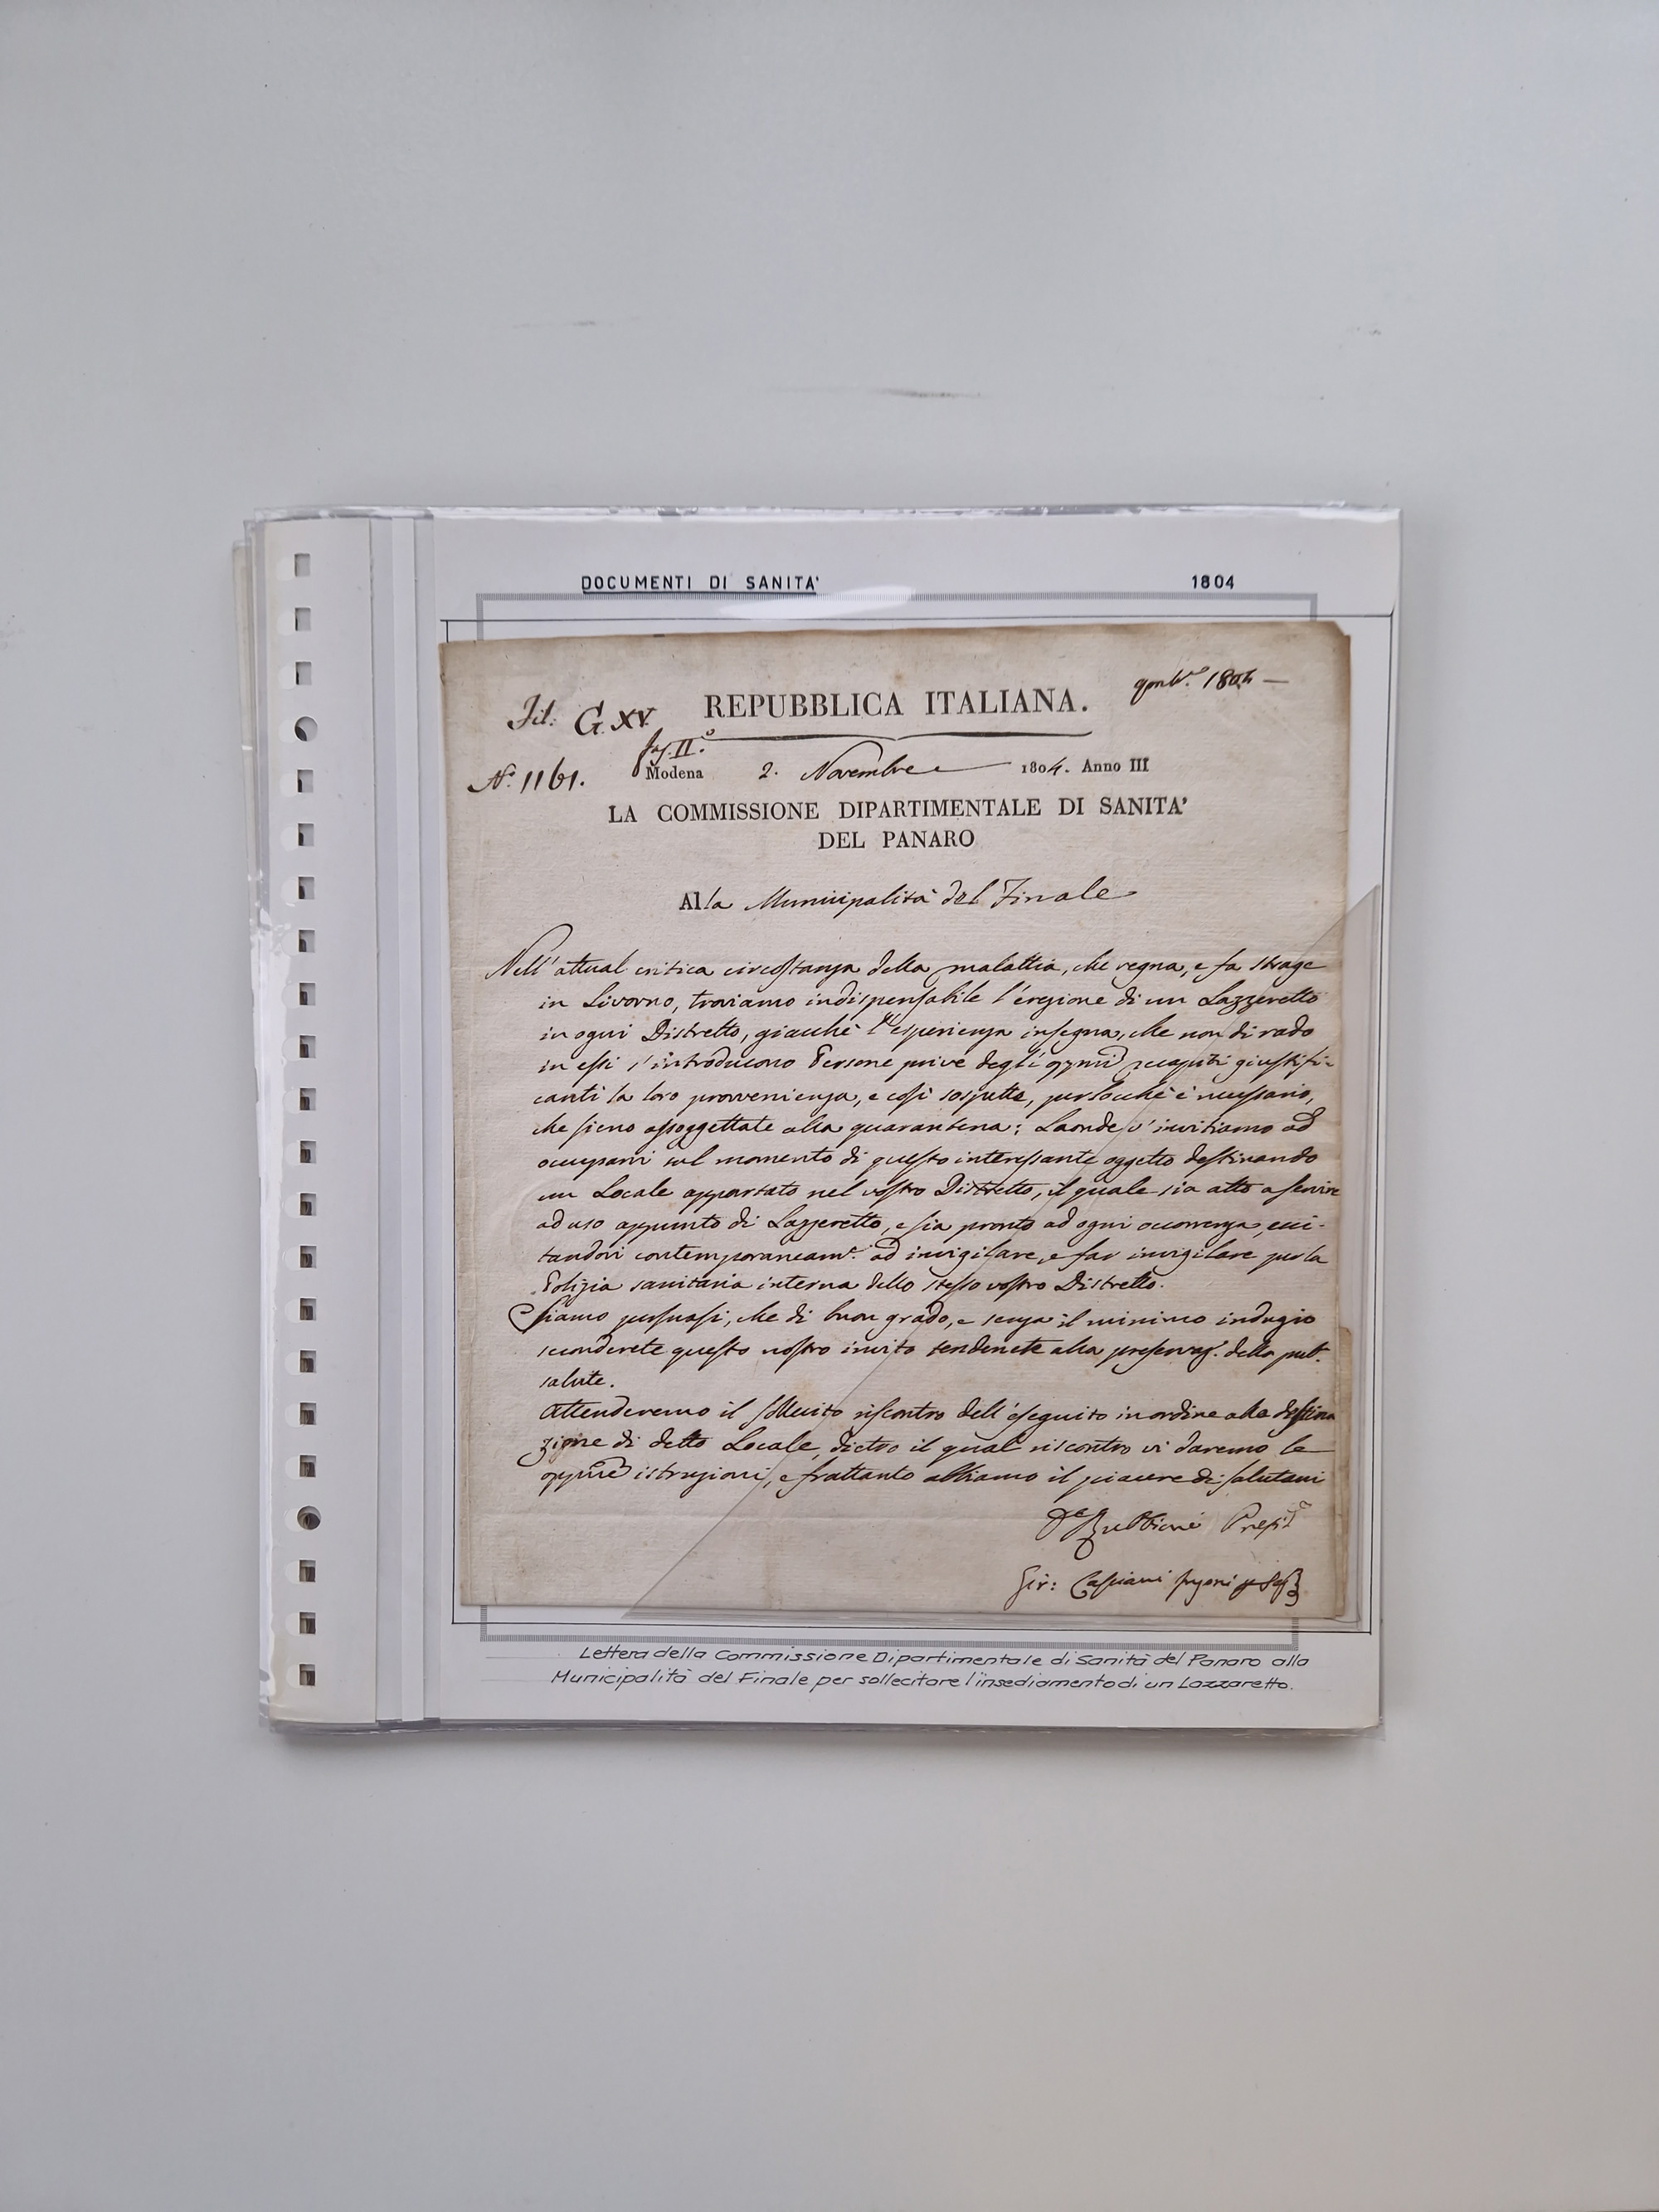 DOCUMENTI DI SANITA' 1804
Tit: G. XV. REPUBBLICA ITALIANA. 9mbr.e 1804 —
fas. II.°
N.° 1161. Modena 2. Novembre 1804. Anno III
LA COMMISSIONE DIPARTIMENTALE DI SANITA'
DEL PANARO
Alla Municipalità del Finale
Nell'attual critica circostanza della malattia, che regna, e fa strage
in Livorno, troviamo indispensabile l'erezione di un Lazzeretto
in ogni Distretto, giacchè l'esperienza insegna, che non di rado
in essi s'introducono Persone prive degli recapiti giustifi-
canti la loro provvenienza, e così sospette, perlocchè è necessario,
che sieno assoggettate alla quarantena: Laonde v'invitiamo ad
occuparvi sul momento di questo interessante oggetto destinando
un Locale appartato nel vostro Distretto, il quale sia atto a servire
ad uso appunto di Lazzeretto, e sia pronto ad ogni occorrenza, ecci-
tandovi contemporaneam.e ad invigilare, e far invigilare per la
Polizia sanitaria interna dello stesso vostro Distretto.
Siamo persuasi, che di buon grado, e senza il minimo indugio
seconderete questo nostro invito tendente alla preservaz.e della pub.
salute.
Attenderemo il sollecito riscontro dell'eseguito in ordine alla destina
zione di detto Locale, dietro il qual riscontro vi daremo le
opp.ne istruzioni, e frattanto abbiamo il piacere di salutarvi
Presid.e
Lettera della Commissione Dipartimentale di Sanità del Panaro alla
Municipalità del Finale per sollecitare l'insediamento di un Lazzaretto.